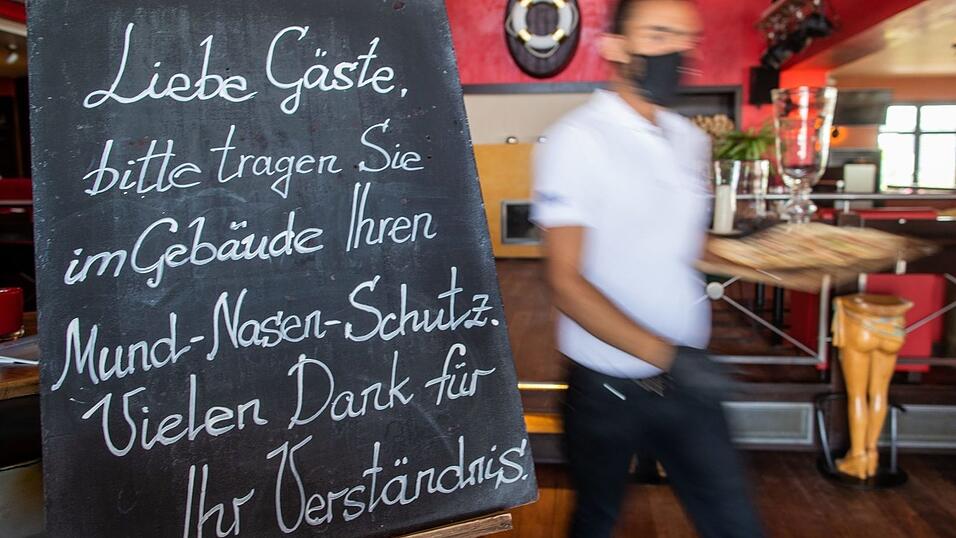 Liebe Gäste,
bitte tragen Sie
im Gebäude Ihren
Mund-Nasen-Schutz.
Vielen Dank für
Ihr Verständnis.